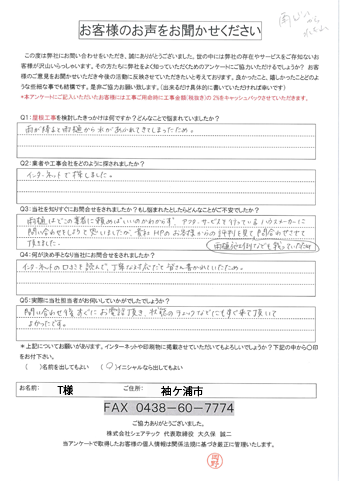 雨どい
から
お客様のお声をお聞かせください
この度は弊社にお問い合わせをいただき、誠にありがとうございました。世の中には弊社の存在やサービスをご存知ないお
客様が沢山いらっしゃいます。その方たちに弊社をよく知っていただくためのアンケートにご協力いただけるでしょうか? お客
様のご意見をお聞かせいただき今後の活動に反映させていただきたいと考えております。良かったこと、嬉しかったことどのよ
うな些細な事でも結構です。是非ご協力お願い致します。(出来るだけ具体的に書いていただければ幸いです)
*本アンケートにご記入いただいたお客様には工事ご用命時に工事金額(税抜き)の2%をキャッシュバックさせていただきます。
Q1:屋根工事を検討したきっかけは何ですか?どんなことで悩まれていましたか?
雨が降ると雨樋から水があふれてきてしまったため。
Q2:業者や工事会社をどのように探されましたか?
インターネットで探しました。
Q3:当社を知りすぐにお問合せをされましたか?もし悩まれたとしたらどんなことがご不安でしたか?
雨樋はどこの業者に頼めばいいのかわからず、アフターサービスを行っているハウスメーカーに
問い合わせをしようと思いましたが、貴社HPのお客様からの評判を見て問合わせさせて
頂きました。
Q4:何が決め手となり当社にお問合せをされましたか?
インターネットの口コミを読んで、丁寧な対応だと皆さん書かれていたため。
Q5:実際に当社担当者がお伺いしていかがでしたでしょうか?
問い合わせ後すぐにお電話頂き、状況のチェックなどにもすぐ来て頂いて
よかったです。
*上記についてお願いがあります。インターネットや印刷物に掲載させていただいてもよろしいでしょうか? 下記の中から〇印
をお付下さい。
( )名前を出してもよい (〇)イニシャルなら出してもよい
お名前: T様 ご住所: 袖ケ浦市
FAX 0438-60-7774
ご協力ありがとうございました。
株式会社シェアテック 代表取締役 大久保 誠二
当アンケートで取得したお客様の個人情報は関係法規に基づき厳正に管理いたします。